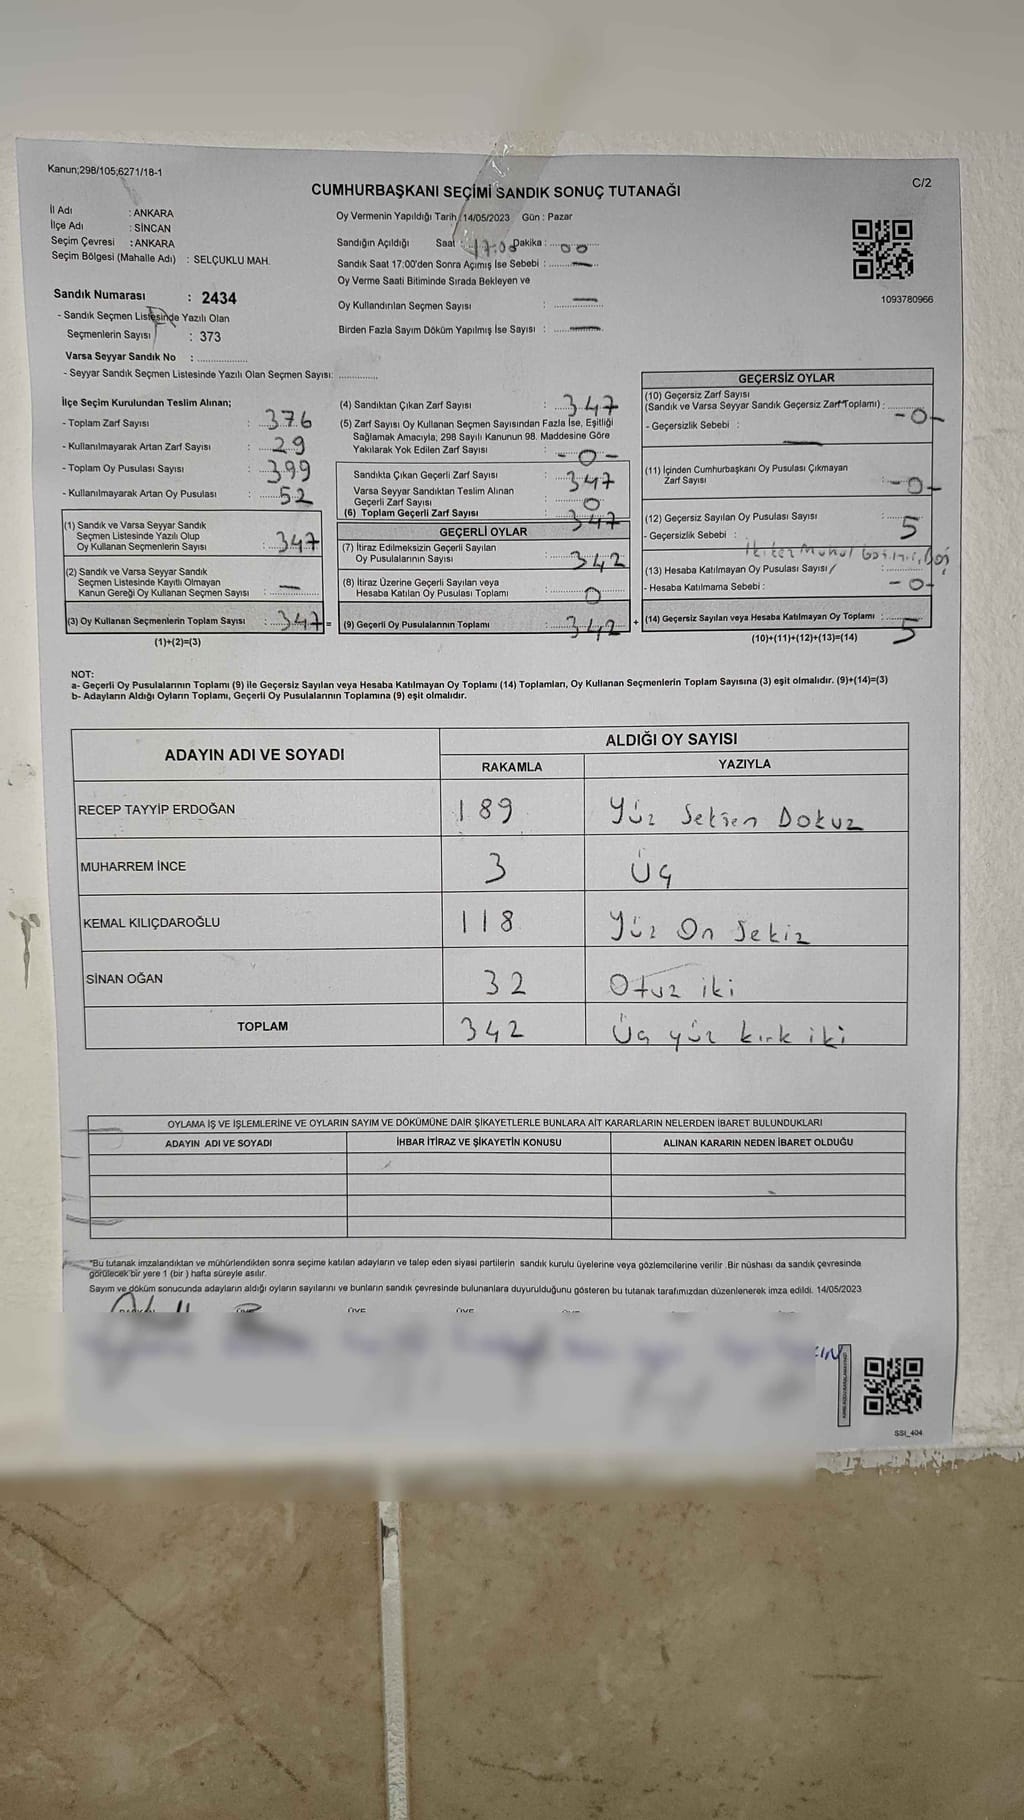 Kanun;298/105,6271/18-1
C/2
CUMHURBAŞKANI SEÇİMİ SANDIK SONUÇ TUTANAĞI
İl Adı : ANKARA
İlçe Adı : SİNCAN
Seçim Çevresi : ANKARA
Seçim Bölgesi (Mahalle Adı) : SELÇUKLU MAH.
Sandık Numarası : 2434
- Sandık Seçmen Listesinde Yazılı Olan
Seçmenlerin Sayısı : 373
Varsa Seyyar Sandık No : ...............
- Seyyar Sandık Seçmen Listesinde Yazılı Olan Seçmen Sayısı: ............
Oy Vermenin Yapıldığı Tarih 14/05/2023 Gün : Pazar
Sandığın Açıldığı Saat : 17:00 Dakika : 00
Sandık Saat 17:00'den Sonra Açımış İse Sebebi : —
Oy Verme Saati Bitiminde Sırada Bekleyen ve
Oy Kullandırılan Seçmen Sayısı : —
Birden Fazla Sayım Döküm Yapılmış İse Sayısı : —
1093780966
İlçe Seçim Kurulundan Teslim Alınan;
- Toplam Zarf Sayısı : 376
- Kullanılmayarak Artan Zarf Sayısı : 29
- Toplam Oy Pusulası Sayısı : 399
- Kullanılmayarak Artan Oy Pusulası : 52
(1) Sandık ve Varsa Seyyar Sandık
Seçmen Listesinde Yazılı Olup
Oy Kullanan Seçmenlerin Sayısı : 347
(2) Sandık ve Varsa Seyyar Sandık
Seçmen Listesinde Kayıtlı Olmayan
Kanun Gereği Oy Kullanan Seçmen Sayısı : —
(3) Oy Kullanan Seçmenlerin Toplam Sayısı : 347 =
(1)+(2)=(3)
(4) Sandıktan Çıkan Zarf Sayısı : 347
(5) Zarf Sayısı Oy Kullanan Seçmen Sayısından Fazla İse, Eşitliği
Sağlamak Amacıyla, 298 Sayılı Kanunun 98. Maddesine Göre
Yakılarak Yok Edilen Zarf Sayısı : -0-
Sandıkta Çıkan Geçerli Zarf Sayısı : 347
Varsa Seyyar Sandıktan Teslim Alınan
Geçerli Zarf Sayısı : 0
(6) Toplam Geçerli Zarf Sayısı : 347
GEÇERLİ OYLAR
(7) İtiraz Edilmeksizin Geçerli Sayılan
Oy Pusulalarının Sayısı : 342
(8) İtiraz Üzerine Geçerli Sayılan veya
Hesaba Katılan Oy Pusulası Toplamı : 0
(9) Geçerli Oy Pusulalarının Toplamı : 342 +
GEÇERSİZ OYLAR
(10) Geçersiz Zarf Sayısı
(Sandık ve Varsa Seyyar Sandık Geçersiz Zarf Toplamı) : -0-
- Geçersizlik Sebebi : —
(11) İçinden Cumhurbaşkanı Oy Pusulası Çıkmayan
Zarf Sayısı : -0-
(12) Geçersiz Sayılan Oy Pusulası Sayısı : 5
- Geçersizlik Sebebi :
(13) Hesaba Katılmayan Oy Pusulası Sayısı
- Hesaba Katılmama Sebebi : -0-
(14) Geçersiz Sayılan veya Hesaba Katılmayan Oy Toplamı : 5
(10)+(11)+(12)+(13)=(14)
NOT:
a- Geçerli Oy Pusulalarının Toplamı (9) ile Geçersiz Sayılan veya Hesaba Katılmayan Oy Toplamı (14) Toplamları, Oy Kullanan Seçmenlerin Toplam Sayısına (3) eşit olmalıdır. (9)+(14)=(3)
b- Adayların Aldığı Oyların Toplamı, Geçerli Oy Pusulalarının Toplamına (9) eşit olmalıdır.
ADAYIN ADI VE SOYADI
ALDIĞI OY SAYISI
RAKAMLA YAZIYLA
RECEP TAYYİP ERDOĞAN 189 Yüz Seksen Dokuz
MUHARREM İNCE 3 Üç
KEMAL KILIÇDAROĞLU 118 Yüz On Sekiz
SİNAN OĞAN 32 Otuz iki
TOPLAM 342 Üç yüz kırk iki
OYLAMA İŞ VE İŞLEMLERİNE VE OYLARIN SAYIM VE DÖKÜMÜNE DAİR ŞİKAYETLERLE BUNLARA AİT KARARLARIN NELERDEN İBARET BULUNDUKLARI
ADAYIN ADI VE SOYADI İHBAR İTİRAZ VE ŞİKAYETİN KONUSU ALINAN KARARIN NEDEN İBARET OLDUĞU
*Bu tutanak imzalandıktan ve mühürlendikten sonra seçime katılan adayların ve talep eden siyasi partilerin sandık kurulu üyelerine veya gözlemcilerine verilir .Bir nüshası da sandık çevresinde
görülecek bir yere 1 (bir ) hafta süreyle asılır.
Sayım ve döküm sonucunda adayların aldığı oyların sayılarını ve bunların sandık çevresinde bulunanlara duyurulduğunu gösteren bu tutanak tarafımızdan düzenlenerek imza edildi. 14/05/2023
SSI_404